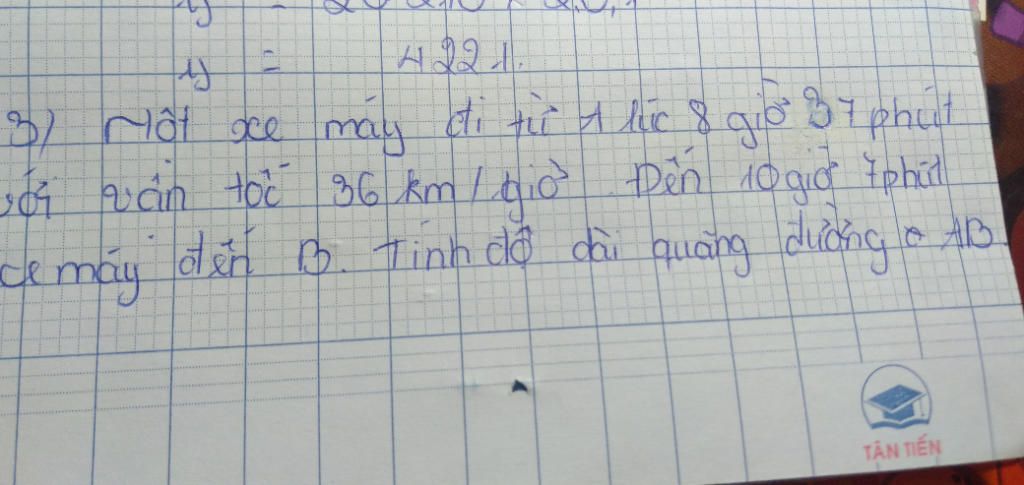 y =
y = 4221.
3) Một xe máy đi từ A lúc 8 giờ 37 phút
với vận tốc 36 km/giờ. Đến 10 giờ 7 phút
xe máy đến B. Tính độ dài quãng đường AB
TÂN TIẾN